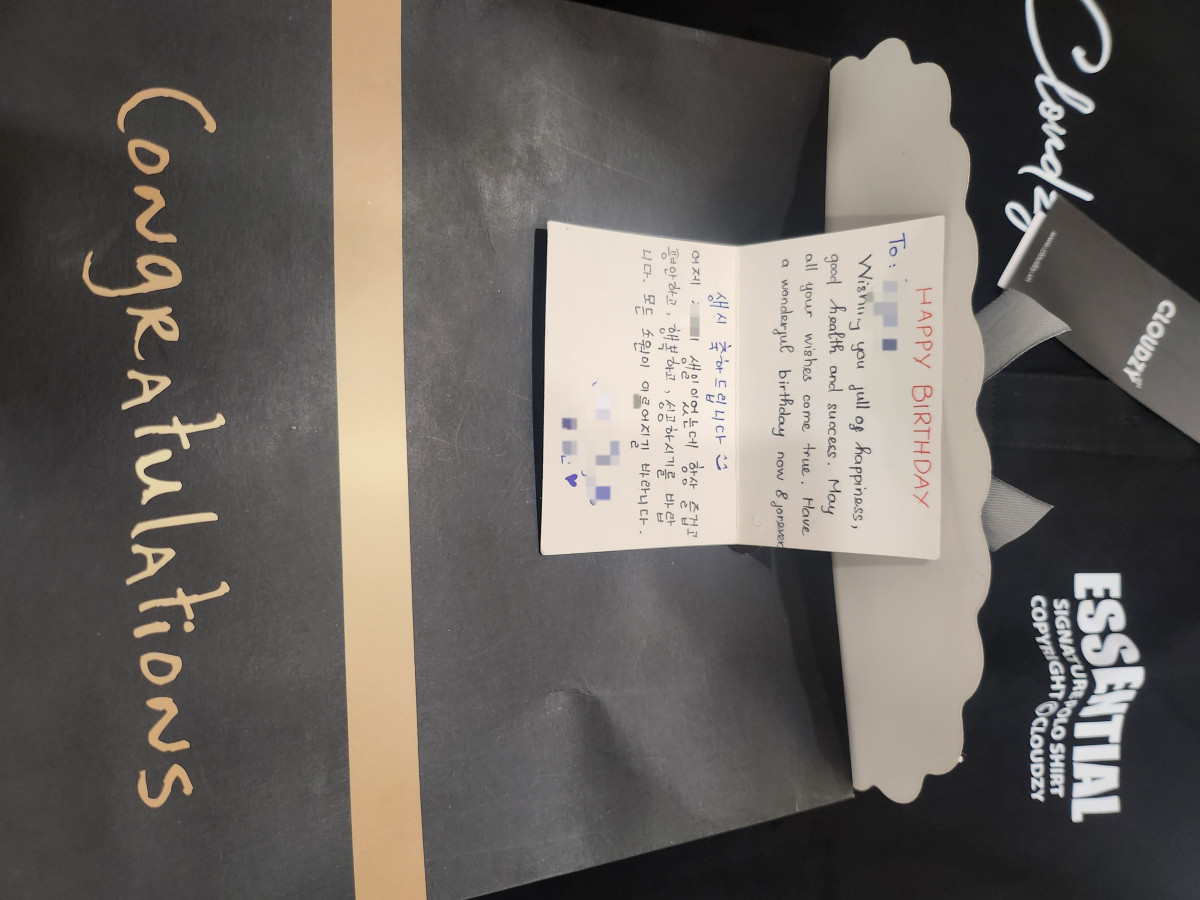 Cloudzy
CLOUDZY
ESSENTIAL
SIGNATURE POLO SHIRT
COPYRIGHT @CLOUDZY
HAPPY BIRTHDAY
To:
Wishing you full of happiness,
good health and success. May
all your wishes come true. Have
a wonderful birthday now & forever
생시 축하드립니다
어제 생일이었는데 항상 즐겁고
평안하고, 행복하고, 성공하시기를 바랍
니다. 모든 소원이 이루어지기 바라니다.
Congratulations